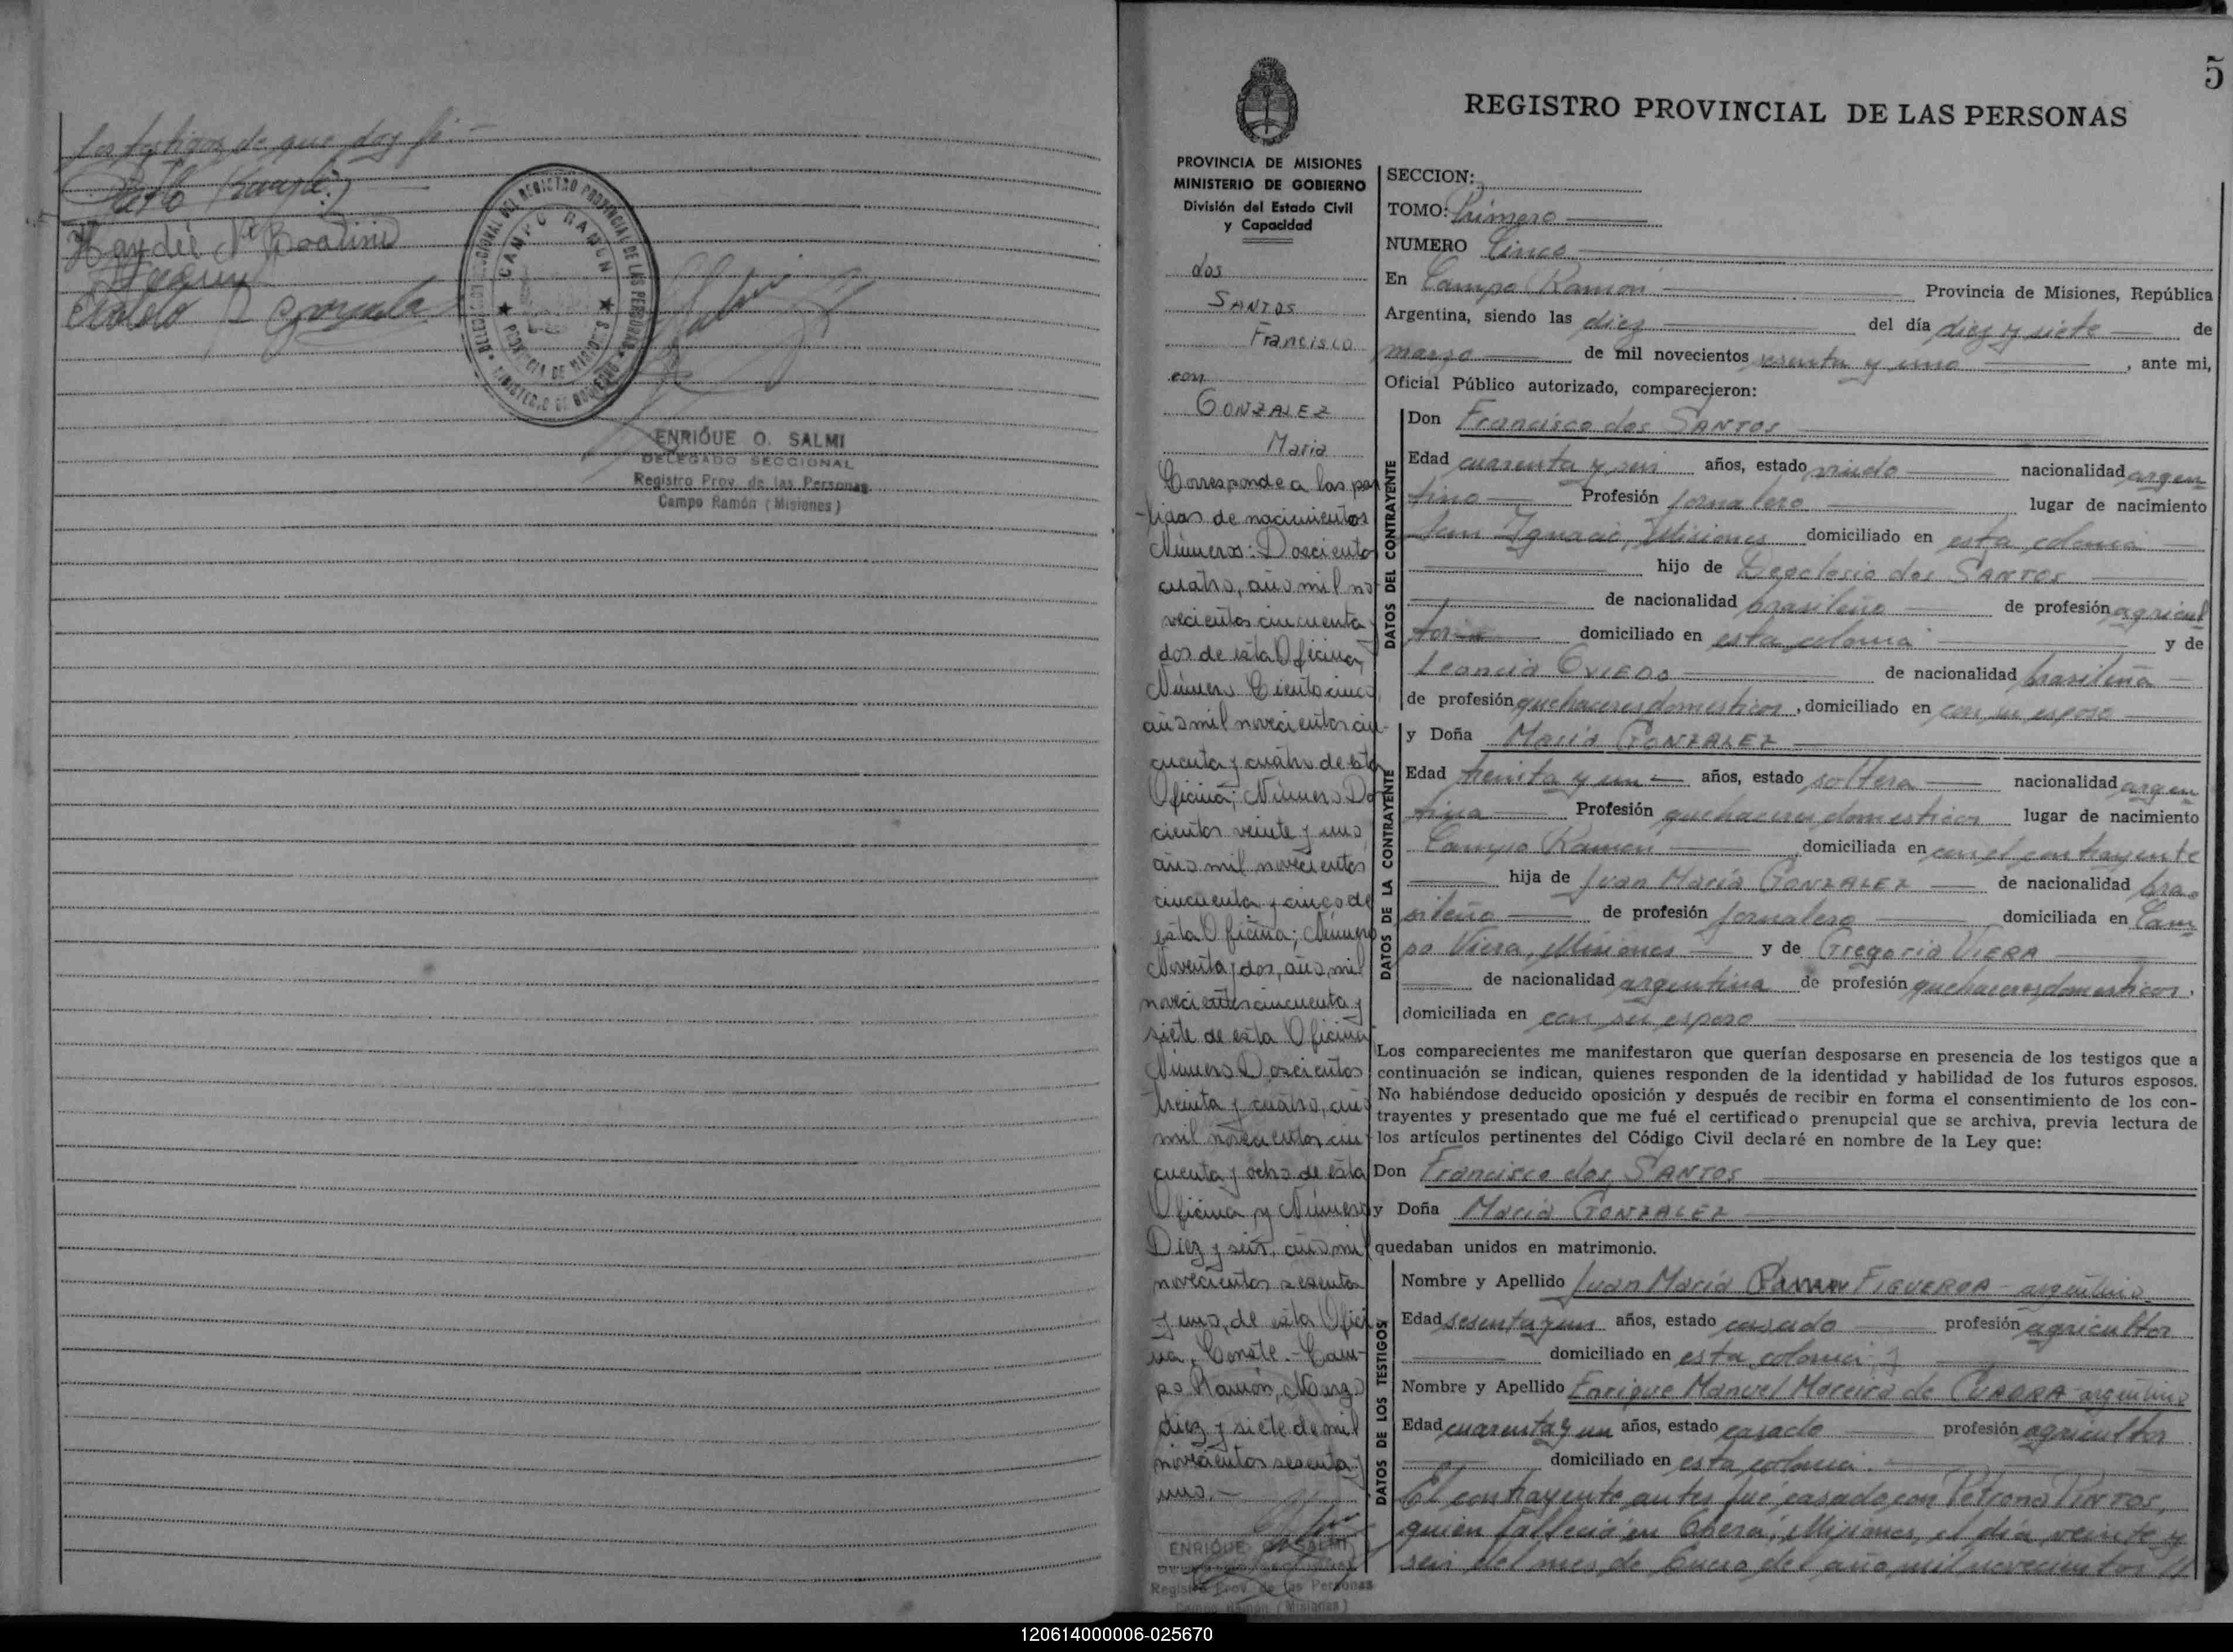 los testigos de que doy fe.—
Haydée N. Boolini
Gonzalez
DELEGACION SECCIONAL DEL REGISTRO PROVINCIAL DE LAS PERSONAS
CAMPO RAMON
PROVINCIA DE MISIONES
MINISTERIO DE GOBIERNO
ENRIQUE O. SALMI
DELEGADO SECCIONAL
Registro Prov. de las Personas
Campo Ramón (Misiones)
5
REGISTRO PROVINCIAL DE LAS PERSONAS
PROVINCIA DE MISIONES
MINISTERIO DE GOBIERNO
División del Estado Civil
y Capacidad
dos
SANTOS
Francisco
con
GONZALEZ
Maria
Corresponde a las par
tidas de nacimientos
Números: Doscientos
cuatro, año mil no
vecientos cincuenta y
dos de esta Oficina,
Número Ciento cinco,
año mil novecientos cin-
cuenta y cuatro de esta
Oficina; Número Dos
cientos veinte y uno,
año mil novecientos
cincuenta y cinco de
esta Oficina; Número
Noventa y dos, año mil
novecientos cincuenta y
siete de esta Oficina
Número Doscientos
treinta y cuatro, año
mil novecientos cin
cuenta y ocho de esta
Oficina y Número
Diez y seis, año mil
novecientos sesenta
y uno, de esta Ofici
na. Conste.- Cam-
po Ramón, Marzo
diez y siete de mil
novecientos sesenta y
uno.—
ENRIQUE O. SALMI
DELEGADO SECCIONAL
Registro Prov. de las Personas
Campo Ramón (Misiones)
SECCION:
TOMO: Primero
NUMERO Cinco
En Campo Ramón Provincia de Misiones, República
Argentina, siendo las diez del día diez y siete de
marzo de mil novecientos sesenta y uno, ante mi,
Oficial Público autorizado, comparecieron:
DATOS DEL CONTRAYENTE
Don Francisco dos SANTOS
Edad cuarenta y seis años, estado viudo nacionalidad argen
tino Profesión jornalero lugar de nacimiento
San Ignacio, Misiones domiciliado en esta colonia
hijo de Deoclesio dos SANTOS
de nacionalidad brasileño de profesión agricul
tor domiciliado en esta colonia y de
Leoncia OVIEDO de nacionalidad brasileña
de profesión quehaceres domesticos, domiciliado en con su esposo
DATOS DE LA CONTRAYENTE
y Doña María GONZALEZ
Edad treinta y un años, estado soltera nacionalidad argen
tina Profesión quehaceres domesticos lugar de nacimiento
Campo Ramon, domiciliada en con el contrayente
hija de Juan María GONZALEZ de nacionalidad bra
sileño de profesión jornalero domiciliada en Cam
po Viera, Misiones y de Gregoria VIERA
de nacionalidad argentina de profesión quehaceres domesticos,
domiciliada en con su esposo
Los comparecientes me manifestaron que querían desposarse en presencia de los testigos que a
continuación se indican, quienes responden de la identidad y habilidad de los futuros esposos.
No habiéndose deducido oposición y después de recibir en forma el consentimiento de los con-
trayentes y presentado que me fué el certificado prenupcial que se archiva, previa lectura de
los artículos pertinentes del Código Civil declaré en nombre de la Ley que:
Don Francisco dos SANTOS
y Doña María GONZALEZ
quedaban unidos en matrimonio.
DATOS DE LOS TESTIGOS
Nombre y Apellido Juan María FIGUEROA - argentino
Edad sesenta y un años, estado casado profesión agricultor
domiciliado en esta colonia y
Nombre y Apellido Enrique Manuel Moreira de CUADRA argentino
Edad cuarenta y un años, estado casado profesión agricultor
domiciliado en esta colonia.
El contrayente antes fué casado con Petrona PINTOS,
quien falleció en Oberá, Misiones, el día veinte y
seis del mes de Enero del año mil novecientos //
120614000006-025670